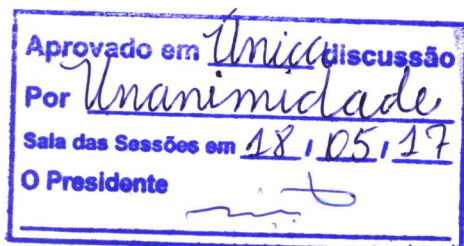 Aprovado em Única discussão
Por Unanimidade
Sala das Sessões em 18 / 05 / 17
O Presidente